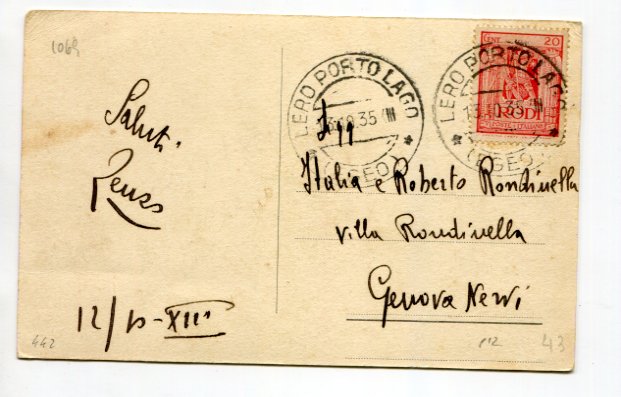 1069
Saluti
Renzo
12/10-XIII
442
LERO PORTO LAGO
13.10.35 XIII
(EGEO)
LERO PORTO LAGO
(EGEO)
CENT. 20
RODI
POSTE ITALIANE
Italia e Roberto Rondinella
Villa Rondinella
Genova Nervi
43